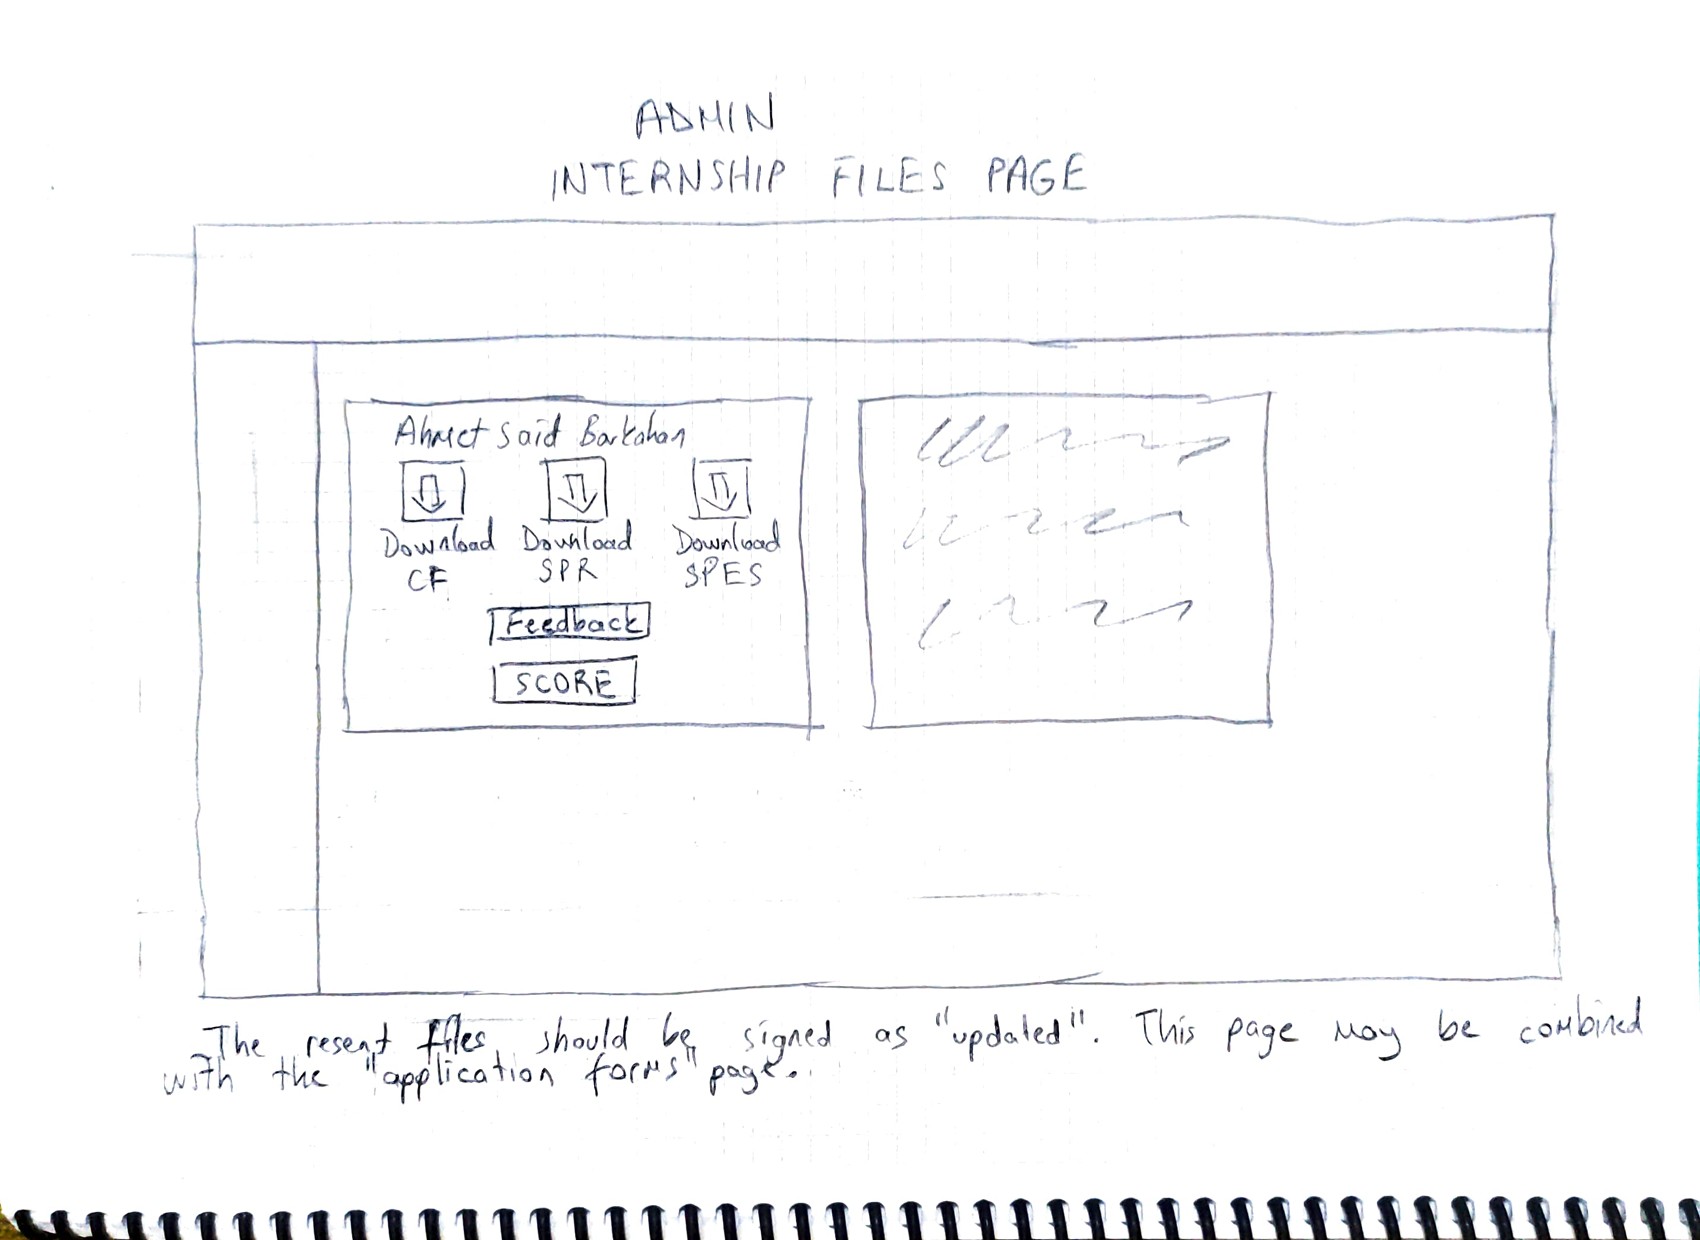 ADMIN
INTERNSHIP FILES PAGE
Ahmet Said Barkahan
Download Download Download
CF SPR SPES
Feedback
SCORE
The resent files should be signed as "updated". This page may be combined
with the "application forms" page.